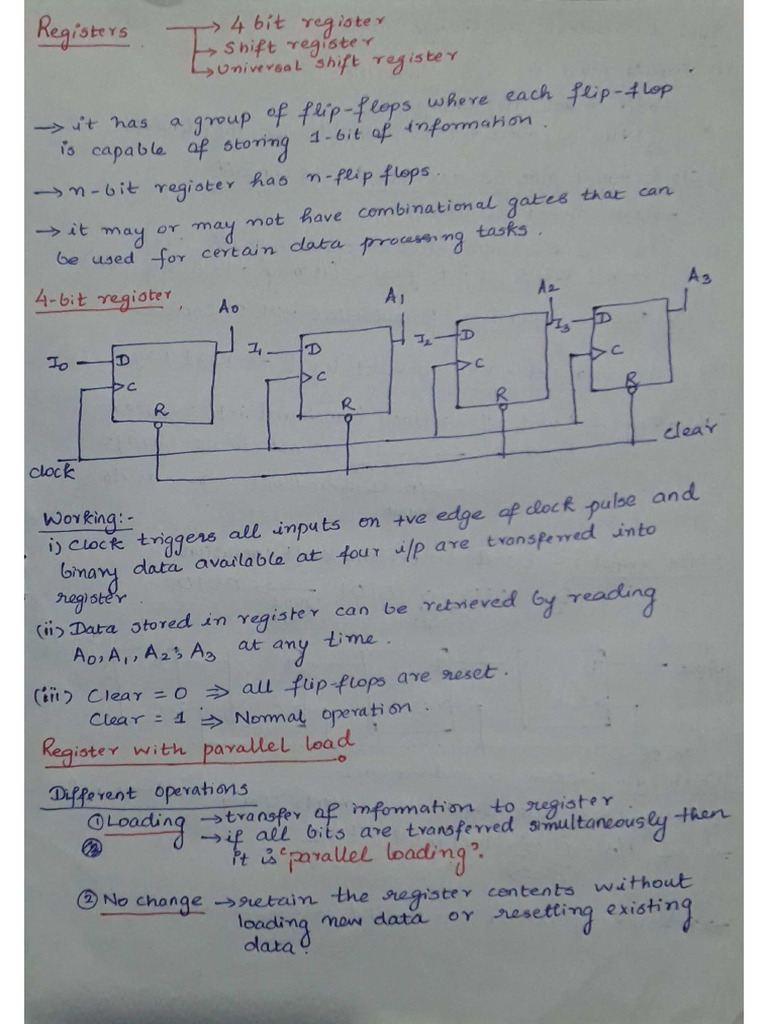 Registers → 4 bit register
→ Shift register
→ Universal shift register
→ it has a group of flip-flops where each flip-flop
is capable of storing 1-bit of information.
→ n-bit register has n-flip flops.
→ it may or may not have combinational gates that can
be used for certain data processing tasks.
4-bit register.
A0 A1 A2 A3
I0 D I1 D I2 D I3 D
C C C C
R R R R
clock clear
Working:-
i) Clock triggers all inputs on +ve edge of clock pulse and
binary data available at four i/p are transferred into
register.
(ii) Data stored in register can be retrieved by reading
A0, A1, A2, A3 at any time.
(iii) Clear = 0 ⇒ all flip-flops are reset.
Clear = 1 ⇒ Normal operation.
Register with parallel load
Different operations
① Loading → transfer of information to register
→ if all bits are transferred simultaneously then
it is "parallel loading".
② No change → retain the register contents without
loading new data or resetting existing
data.